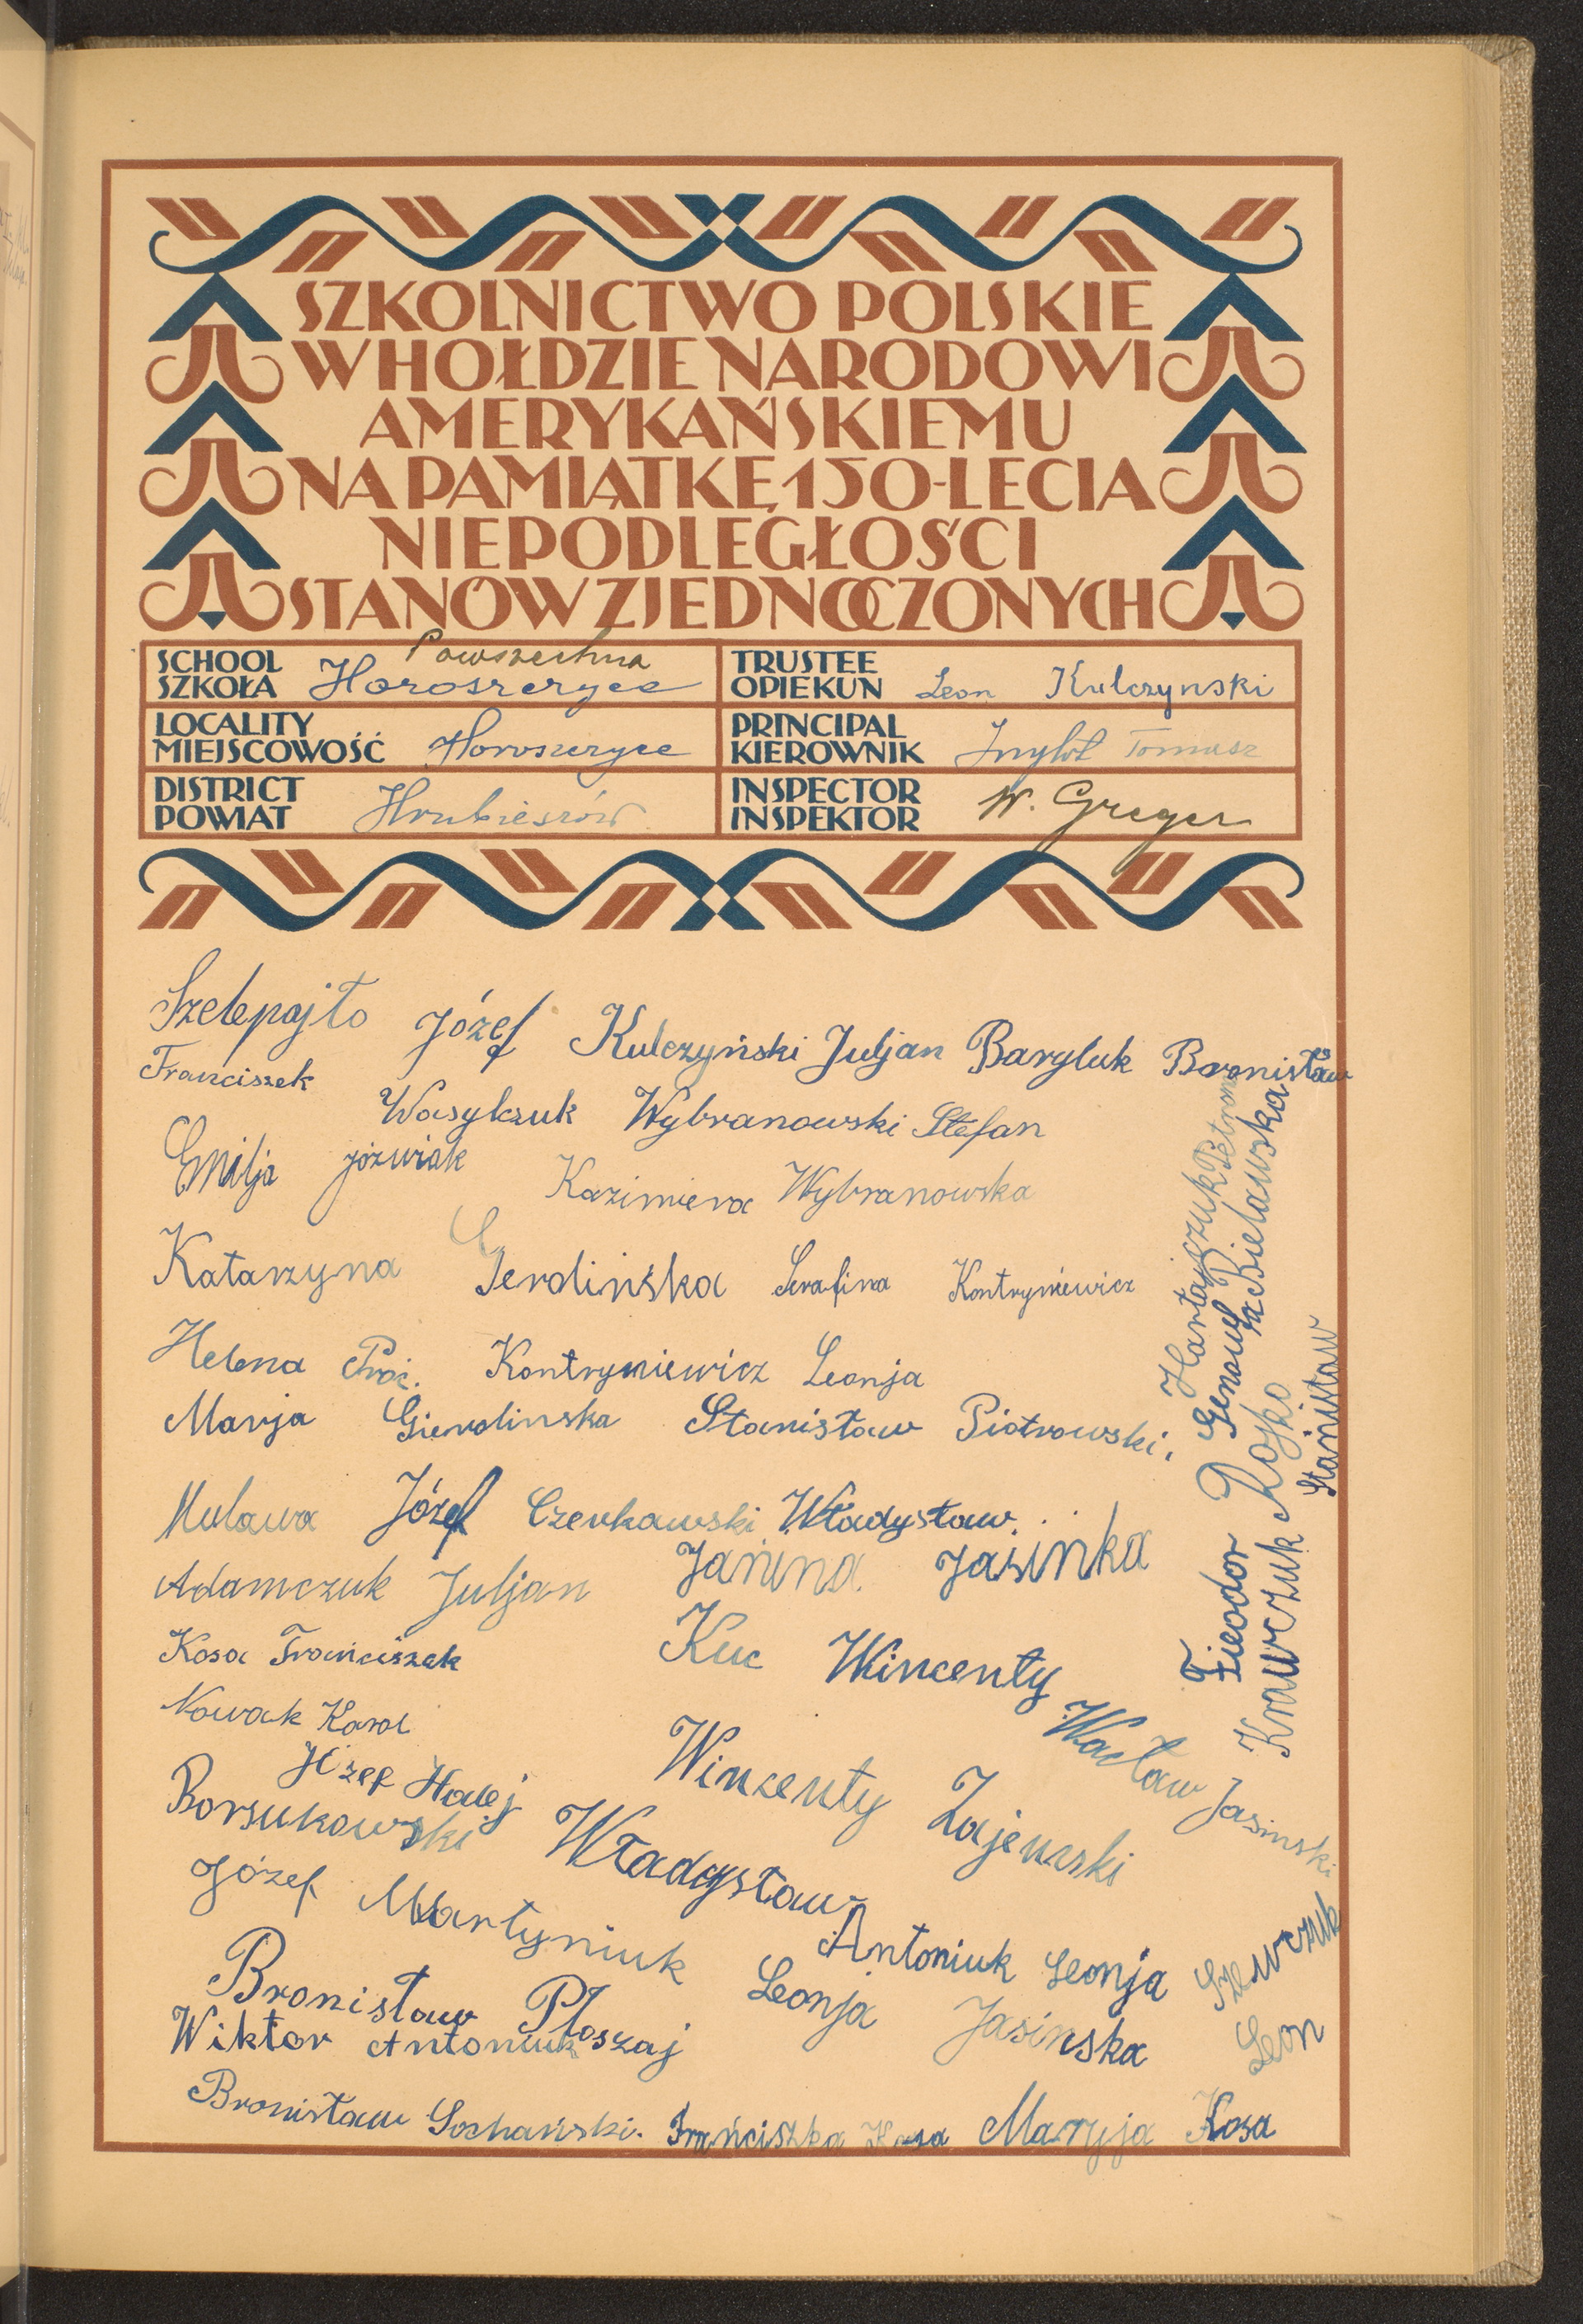 SZKOLNICTWO POLSKIE
W HOŁDZIE NARODOWI
AMERYKAŃSKIEMU
NA PAMIĄTKĘ 150-LECIA
NIEPODLEGŁOŚCI
STANÓW ZJEDNOCZONYCH
SCHOOL
SZKOŁA
Powszechna
Horoszczyce
TRUSTEE
OPIEKUN
Leon Kulczynski
LOCALITY
MIEJSCOWOŚĆ
Horoszczyce
PRINCIPAL
KIEROWNIK
Inglot Tomasz
DISTRICT
POWIAT
Hrubieszów
INSPECTOR
INSPEKTOR
W. Greger
Szelepajło Józef Kulczyński Juljan Baryluk Bronisław
Franciszek Wasylczuk Wybranowski Stefan
Emilja Jóźwiak Kazimiera Wybranowska
Katarzyna Gierdlińska Serafina Kontrymiewicz
Helena Proć. Kontrymiewicz Leonja
Marja Gierdlinska Stanisław Piotrowski.
Mulawa Józef Czerkawski Władysław.
Adamczuk Juljan Janina Jasinka
Kosa Franciszek Kuc Wincenty
Nowak Karol Wacław Jasinski
Józef Hałej Wincenty Zajewski
Borsukowski Władysław
Józef Martyniuk Antoniuk Leonja
Bronisław Płoszaj Leonja Jasinska
Wiktor Antoniuk
Szewczuk
Leon
Bronisław Sochański. Franciszka Kosa Maryja Kosa
Hartajczuk
Genowefa Bielawska
Fieodor Rojko
Krawczuk Stanisław